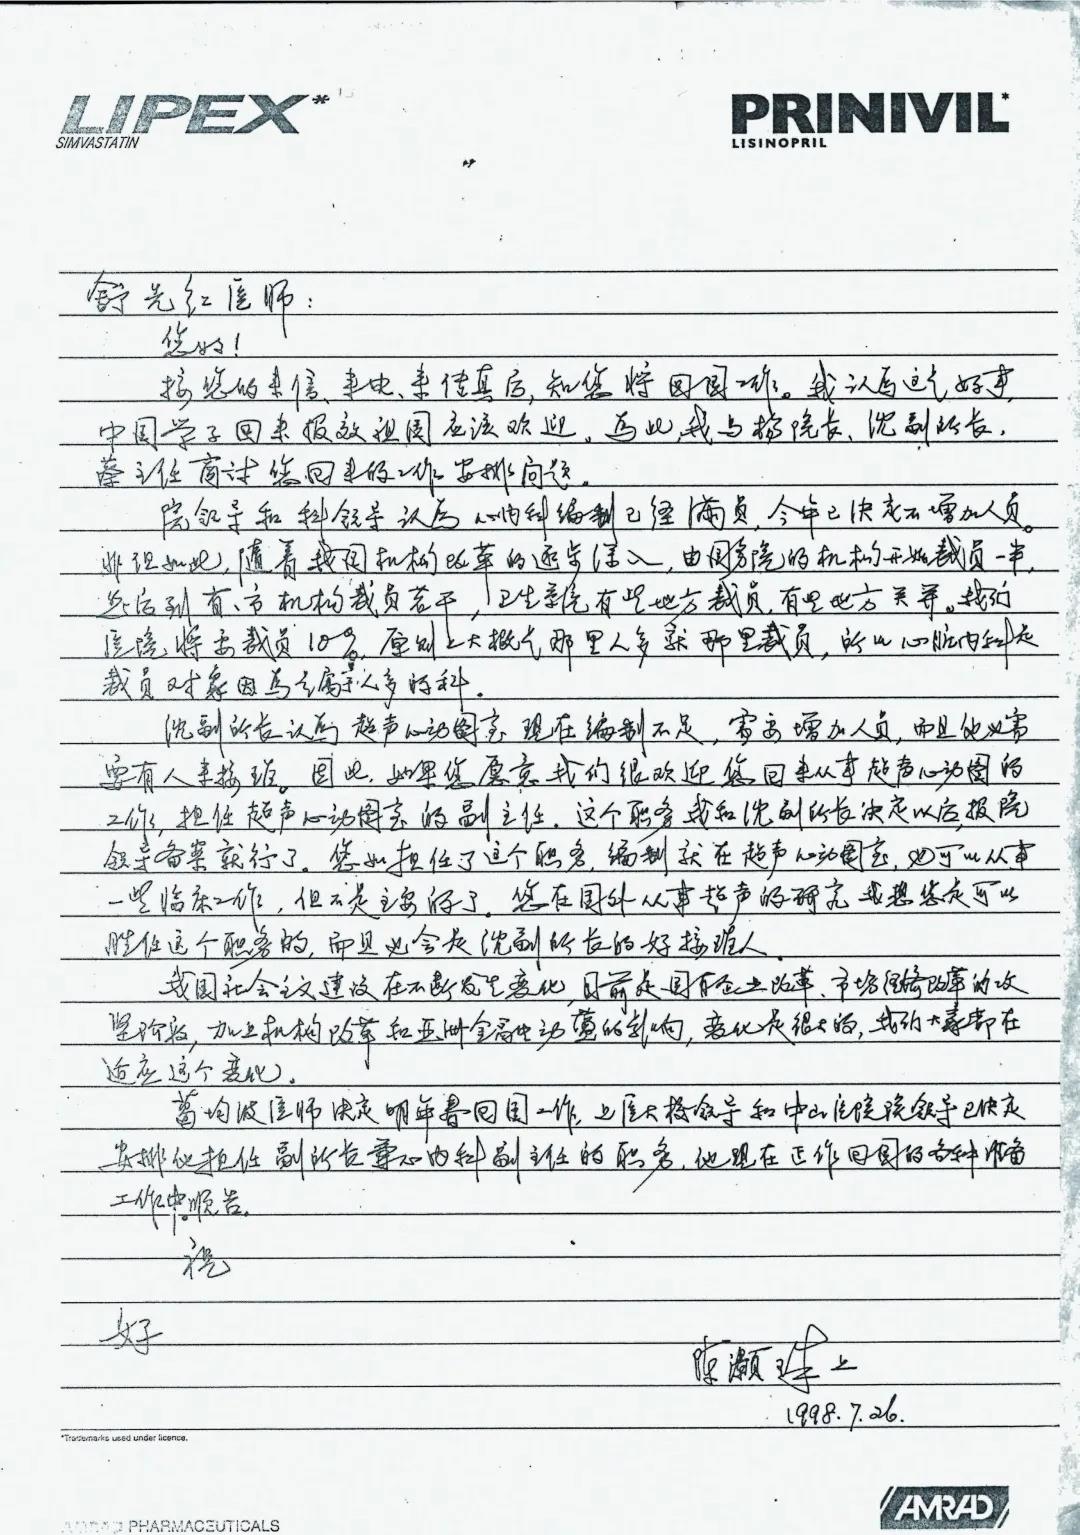 LIPEX*
SIMVASTATIN
PRINIVIL*
LISINOPRIL
舒先红医师：
您好！
接您的来信、来电、来传真后，知您将回国工作。我认为这是好事，
中国学子回来报效祖国应该欢迎。为此，我与杨院长、沈副所长、
蔡主任商讨您回来的工作安排问题。
院领导和科领导认为心内科编制已经满员，今年已决定不增加人员。
非但如此，随着我国机构改革的逐步深入，由国务院的机构开始裁员一半，
然后到省、市机构裁员若干，卫生系统有些地方裁员，有些地方关并。我们
医院将要裁员10%，原则上大概是那里人多就那里裁员，所以心脏内科是
裁员对象因为是属于人多的科。
沈副所长认为超声心动图室现在编制不足，需要增加人员，而且他也需
要有人来接班。因此，如果您愿意我们很欢迎您回来从事超声心动图的
工作，担任超声心动图室的副主任。这个职务我和沈副所长决定以后，报院
领导备案就行了。您如担任了这个职务，编制就在超声心动图室，也可以从事
一些临床工作，但不是主要的了。您在国外从事超声的研究我想您是可以
胜任这个职务的，而且也会是沈副所长的好接班人。
我国社会主义建设在不断发生变化，目前是国有企业改革、市场经济改革的攻
坚阶段，加上机构改革和亚洲金融动荡的影响，变化是很大的，我们大家都在
适应这个变化。
葛均波医师决定明年春回国工作，上医大校领导和中山医院院领导已决定
安排他担任副所长兼心内科副主任的职务，他现在正作回国的各种准备
工作中。顺告。
祝
好
陈灏珠上
1998.7.26.
*Trademarks used under licence.
AMRAD PHARMACEUTICALS
AMRAD